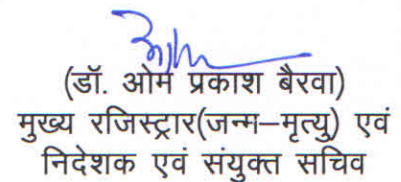 (डॉ. ओम प्रकाश बैरवा)
मुख्य रजिस्ट्रार(जन्म–मृत्यु) एवं
निदेशक एवं संयुक्त सचिव